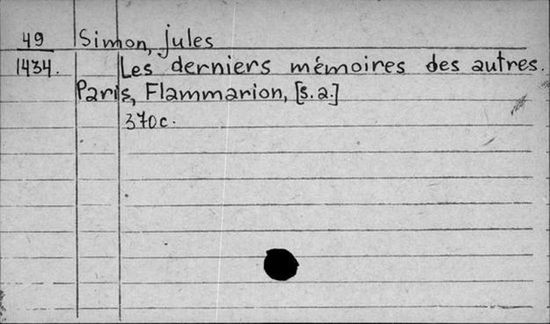 49 Simon, Jules
1434. Les derniers mémoires des autres.
Paris, Flammarion, [s.a.]
370c.